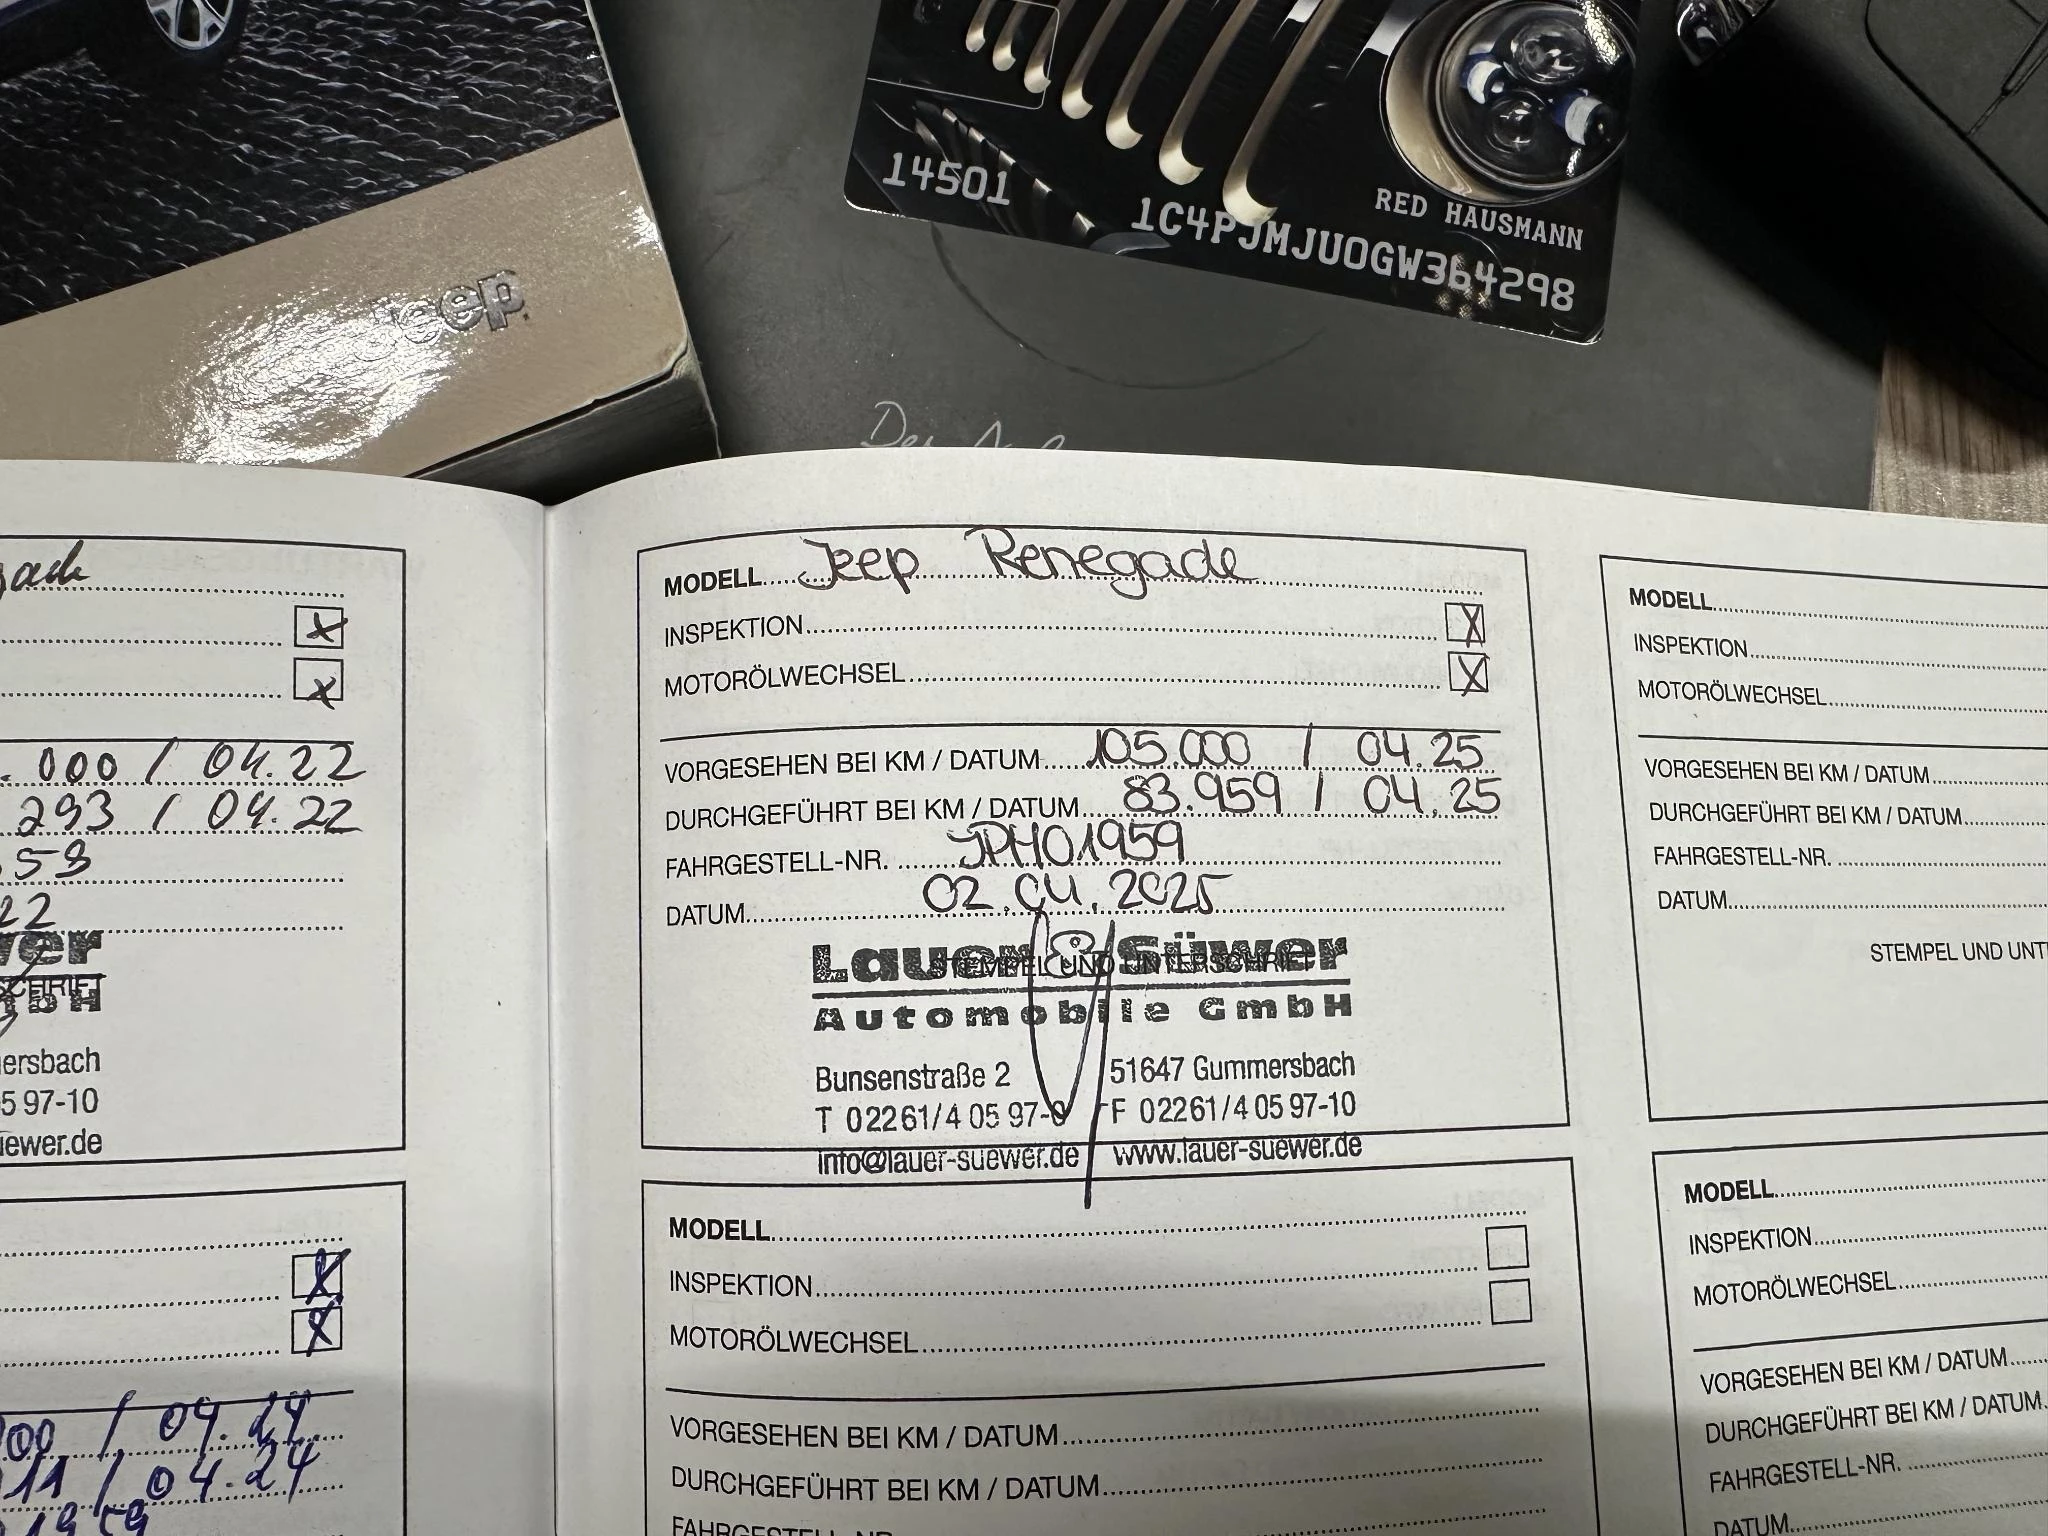 Jeep
14501
RED HAUSMANN
1C4PJMJU0GW364298
MODELL Jeep Renegade
INSPEKTION X
MOTORÖLWECHSEL X
VORGESEHEN BEI KM / DATUM 105.000 / 04.25
DURCHGEFÜHRT BEI KM / DATUM 83.959 / 04.25
FAHRGESTELL-NR. JPH01959
DATUM 02.04.2025
STEMPEL UND UNTERSCHRIFT
Lauer & Süwer
Automobile GmbH
Bunsenstraße 2 51647 Gummersbach
T 02261/4 05 97-0 F 02261/4 05 97-10
info@lauer-suewer.de www.lauer-suewer.de
MODELL
INSPEKTION
MOTORÖLWECHSEL
VORGESEHEN BEI KM / DATUM
DURCHGEFÜHRT BEI KM / DATUM
FAHRGESTELL-NR.
x
x
000 / 04.22
293 / 04.22
ersbach
5 97-10
uewer.de
X
X
00 / 04.24
11 / 04.24
1959
MODELL
INSPEKTION
MOTORÖLWECHSEL
VORGESEHEN BEI KM / DATUM
DURCHGEFÜHRT BEI KM / DATUM
FAHRGESTELL-NR.
DATUM
STEMPEL UND UNT
MODELL
INSPEKTION
MOTORÖLWECHSEL
VORGESEHEN BEI KM / DATUM
DURCHGEFÜHRT BEI KM / DATUM
FAHRGESTELL-NR.
DATUM